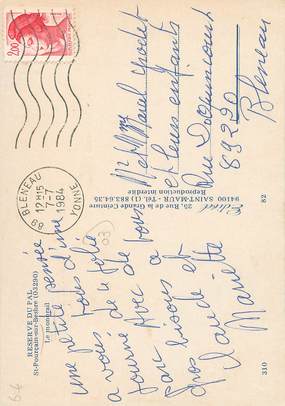 RESERVE DU PAL
St-Pourçain-sur-Besbre (03290)
Le monorail
une petite pensée
pour tous d'une
a vous de la folie
tournée avec
parc
gros bisous et
à vous
Claude Mariette
Edition 25, Rue de la Grande Ceinture
94100 SAINT-MAUR - Tél. (1) 883.64.35
Reproduction interdite
310
82
2,00
89 BLENEAU
12H15
17-7
1984
YONNE
Mr et Mme Marcel
et leurs enfants
Rue
89220
Bleneau
03
64